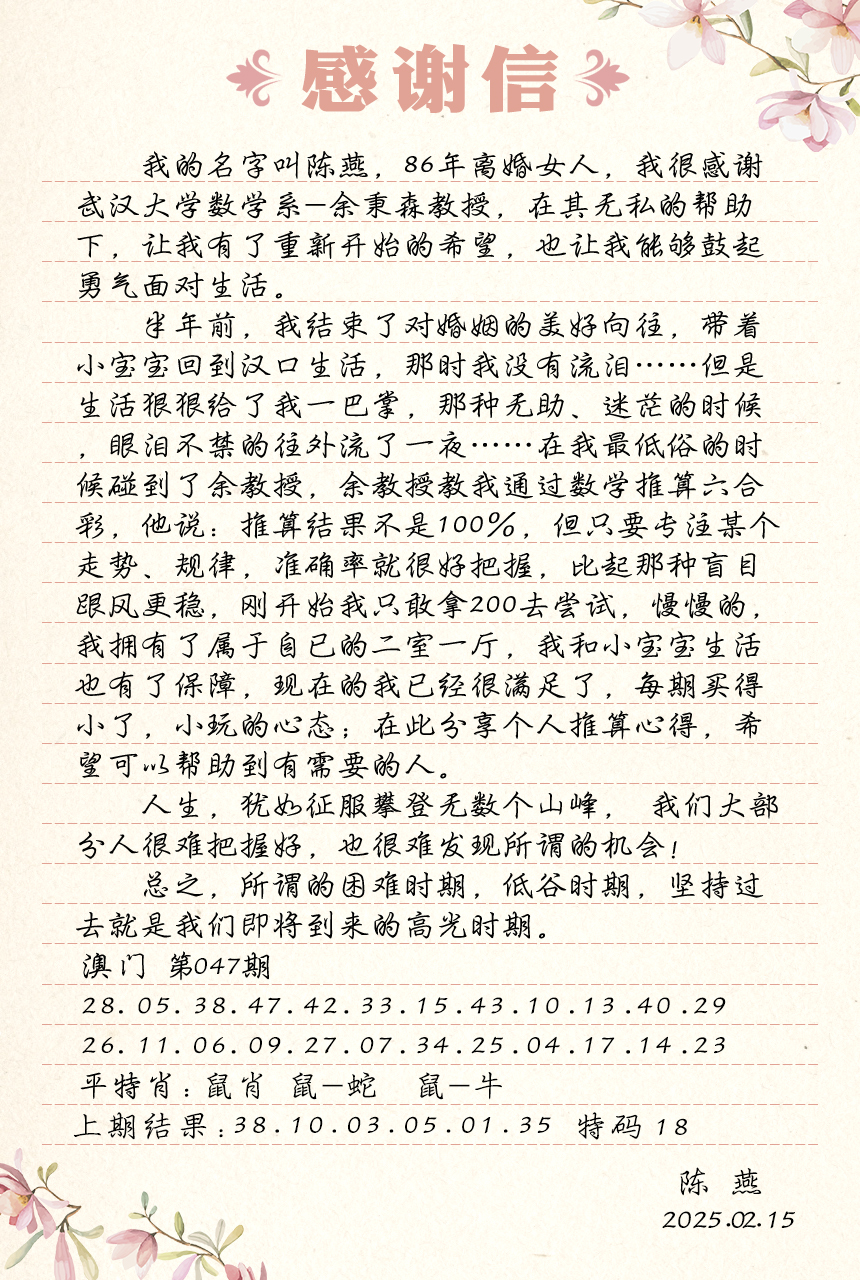 感谢信
我的名字叫陈燕，86年离婚女人，我很感谢
武汉大学数学系—余秉森教授，在其无私的帮助
下，让我有了重新开始的希望，也让我能够鼓起
勇气面对生活。
半年前，我结束了对婚姻的美好向往，带着
小宝宝回到汉口生活，那时我没有流泪……但是
生活狠狠给了我一巴掌，那种无助、迷茫的时候
，眼泪不禁的往外流了一夜……在我最低俗的时
候碰到了余教授，余教授教我通过数学推算六合
彩，他说：推算结果不是100%，但只要专注某个
走势、规律，准确率就很好把握，比起那种盲目
跟风更稳，刚开始我只敢拿200去尝试，慢慢的，
我拥有了属于自已的二室一厅，我和小宝宝生活
也有了保障，现在的我已经很满足了，每期买得
小了，小玩的心态；在此分享个人推算心得，希
望可以帮助到有需要的人。
人生，犹如征服攀登无数个山峰， 我们大部
分人很难把握好，也很难发现所谓的机会！
总之，所谓的困难时期，低谷时期，坚持过
去就是我们即将到来的高光时期。
澳门 第047期
28.05.38.47.42.33.15.43.10.13.40.29
26.11.06.09.27.07.34.25.04.17.14.23
平特肖：鼠肖 鼠—蛇 鼠—牛
上期结果：38.10.03.05.01.35 特码 18
陈 燕
2025.02.15